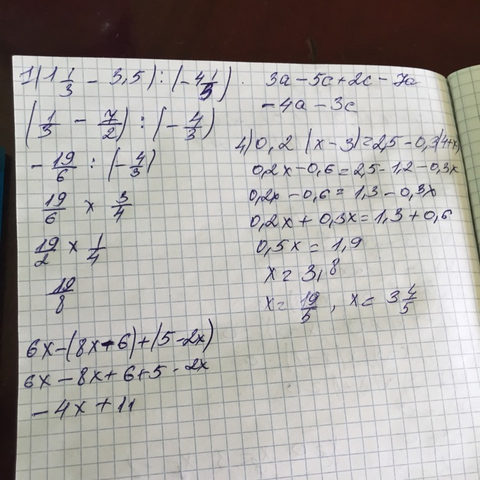 1) (1 1/3 - 3,5) : (-4 1/3).
(1/3 - 7/2) : (-4/3)
- 19/6 : (-4/3)
19/6 x 3/4
19/2 x 1/4
19/8
6x-(8x-6)+(5-2x)
6x-8x+6+5-2x
-4x+11
3a-5c+2c-7a
-4a-3c
4) 0,2(x-3)=2,5-0,3(4+x)
0,2x-0,6=2,5-1,2-0,3x
0,2x-0,6=1,3-0,3x
0,2x+0,3x=1,3+0,6
0,5x=1,9
x=3,8
x=19/5, x=3 4/5